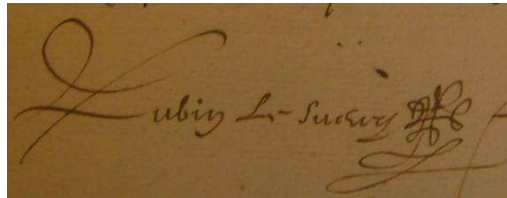 Lubin Le Sueur